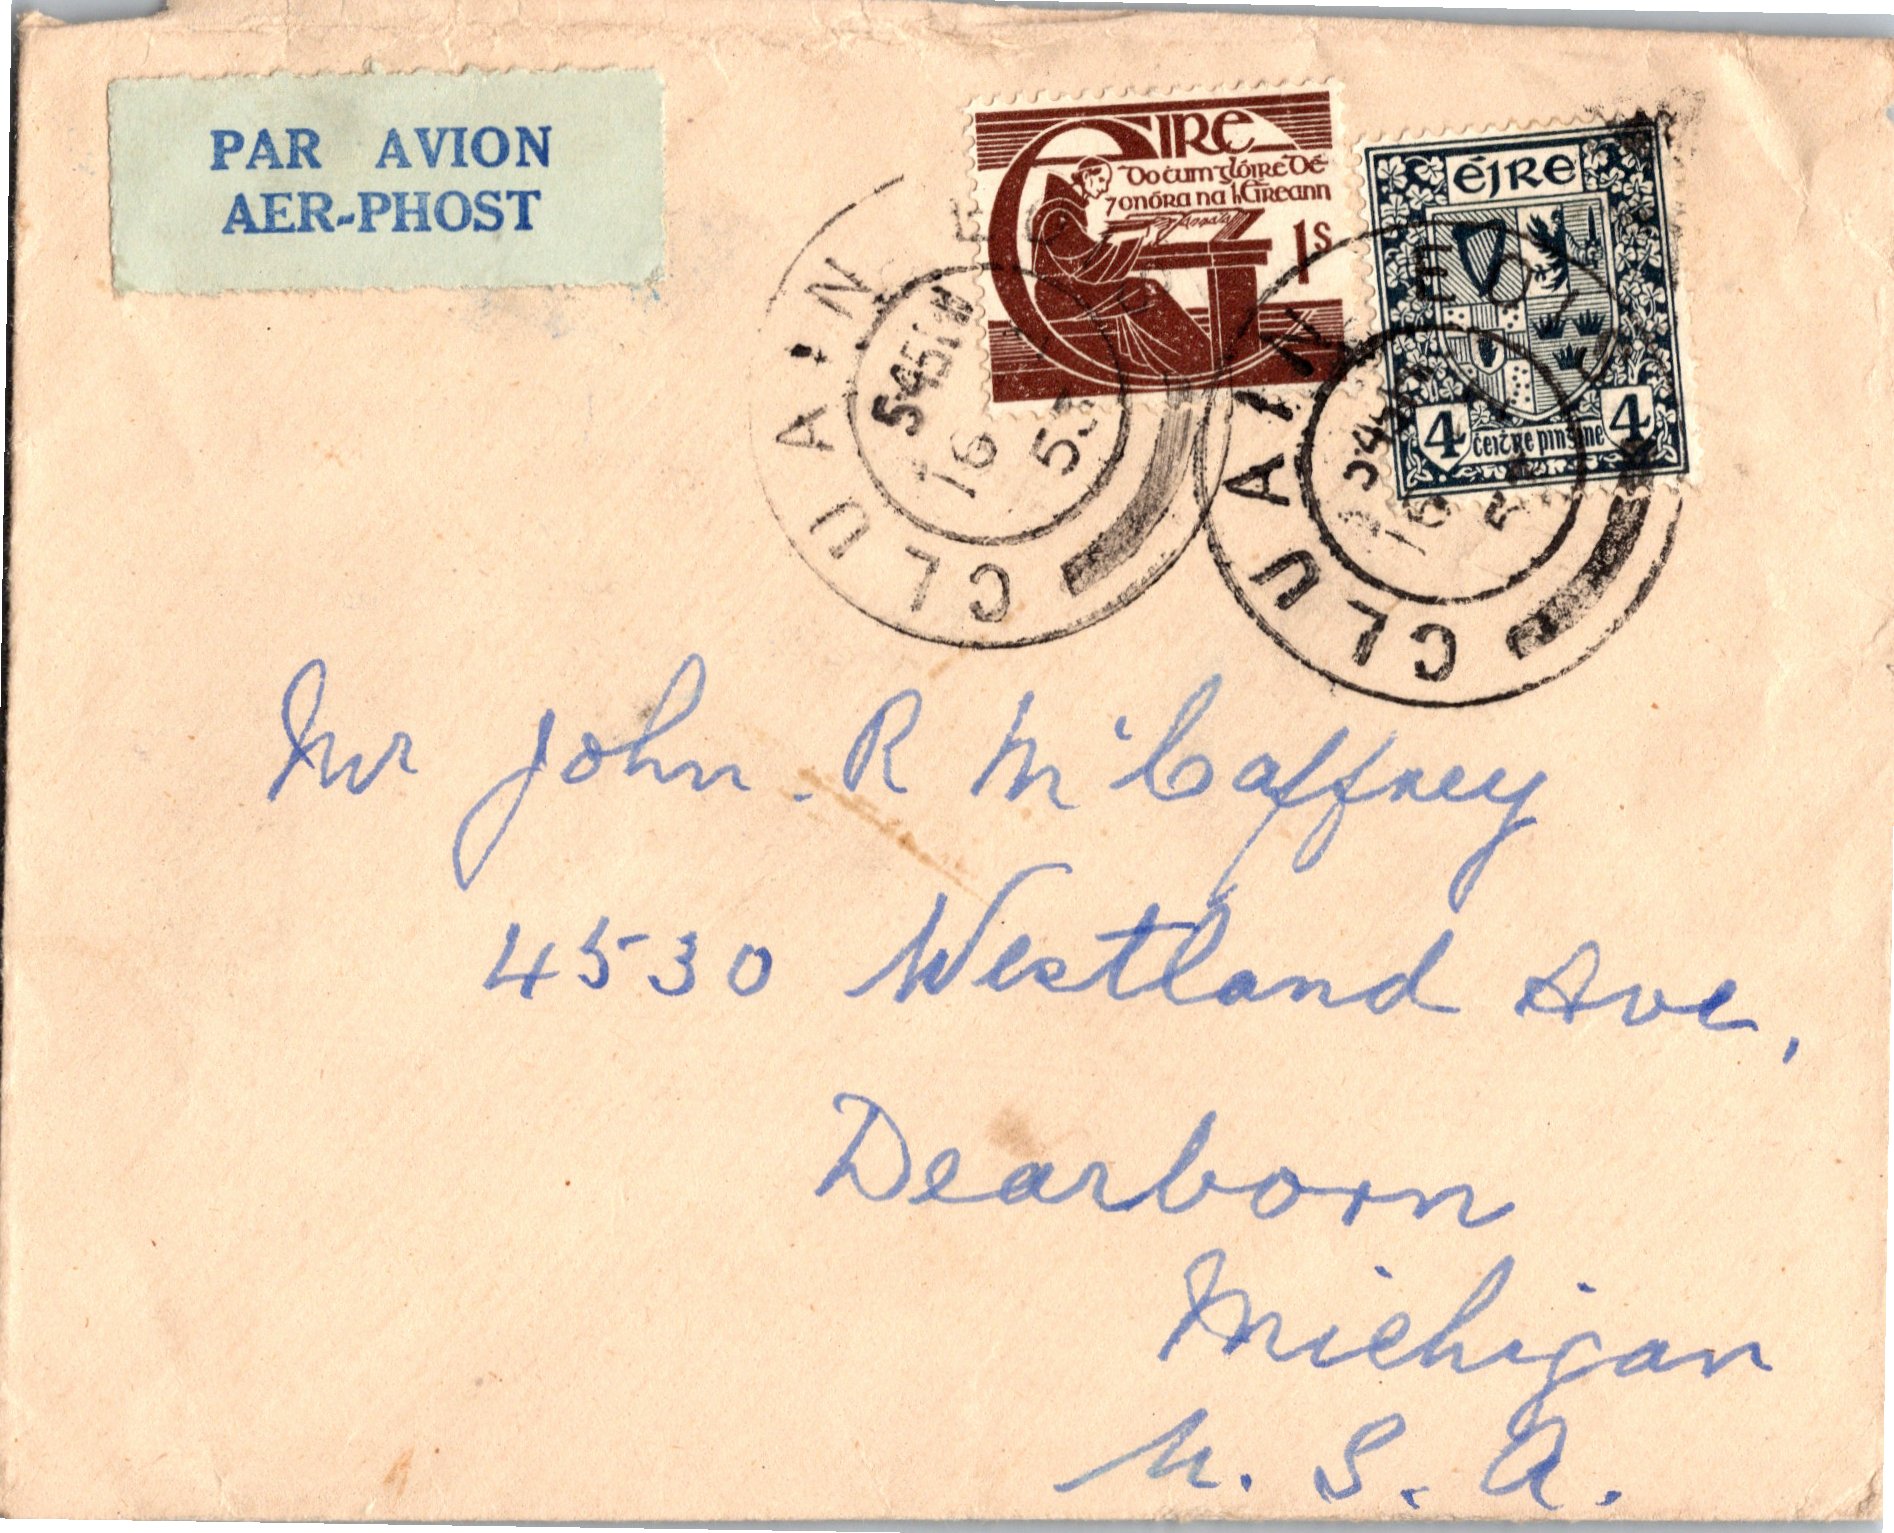 PAR AVION
AER-PHOST
éIRe
Do ċum glóire Dé
⁊ onóra na hÉireann
1s
éire
4 ceitre pinsine 4
CLUAIN EO
545PM
16
53
CLUAIN EO
16
Mr John. R McCaffrey
4530 Westland Ave,
Dearborn
Michigan
U. S. A.